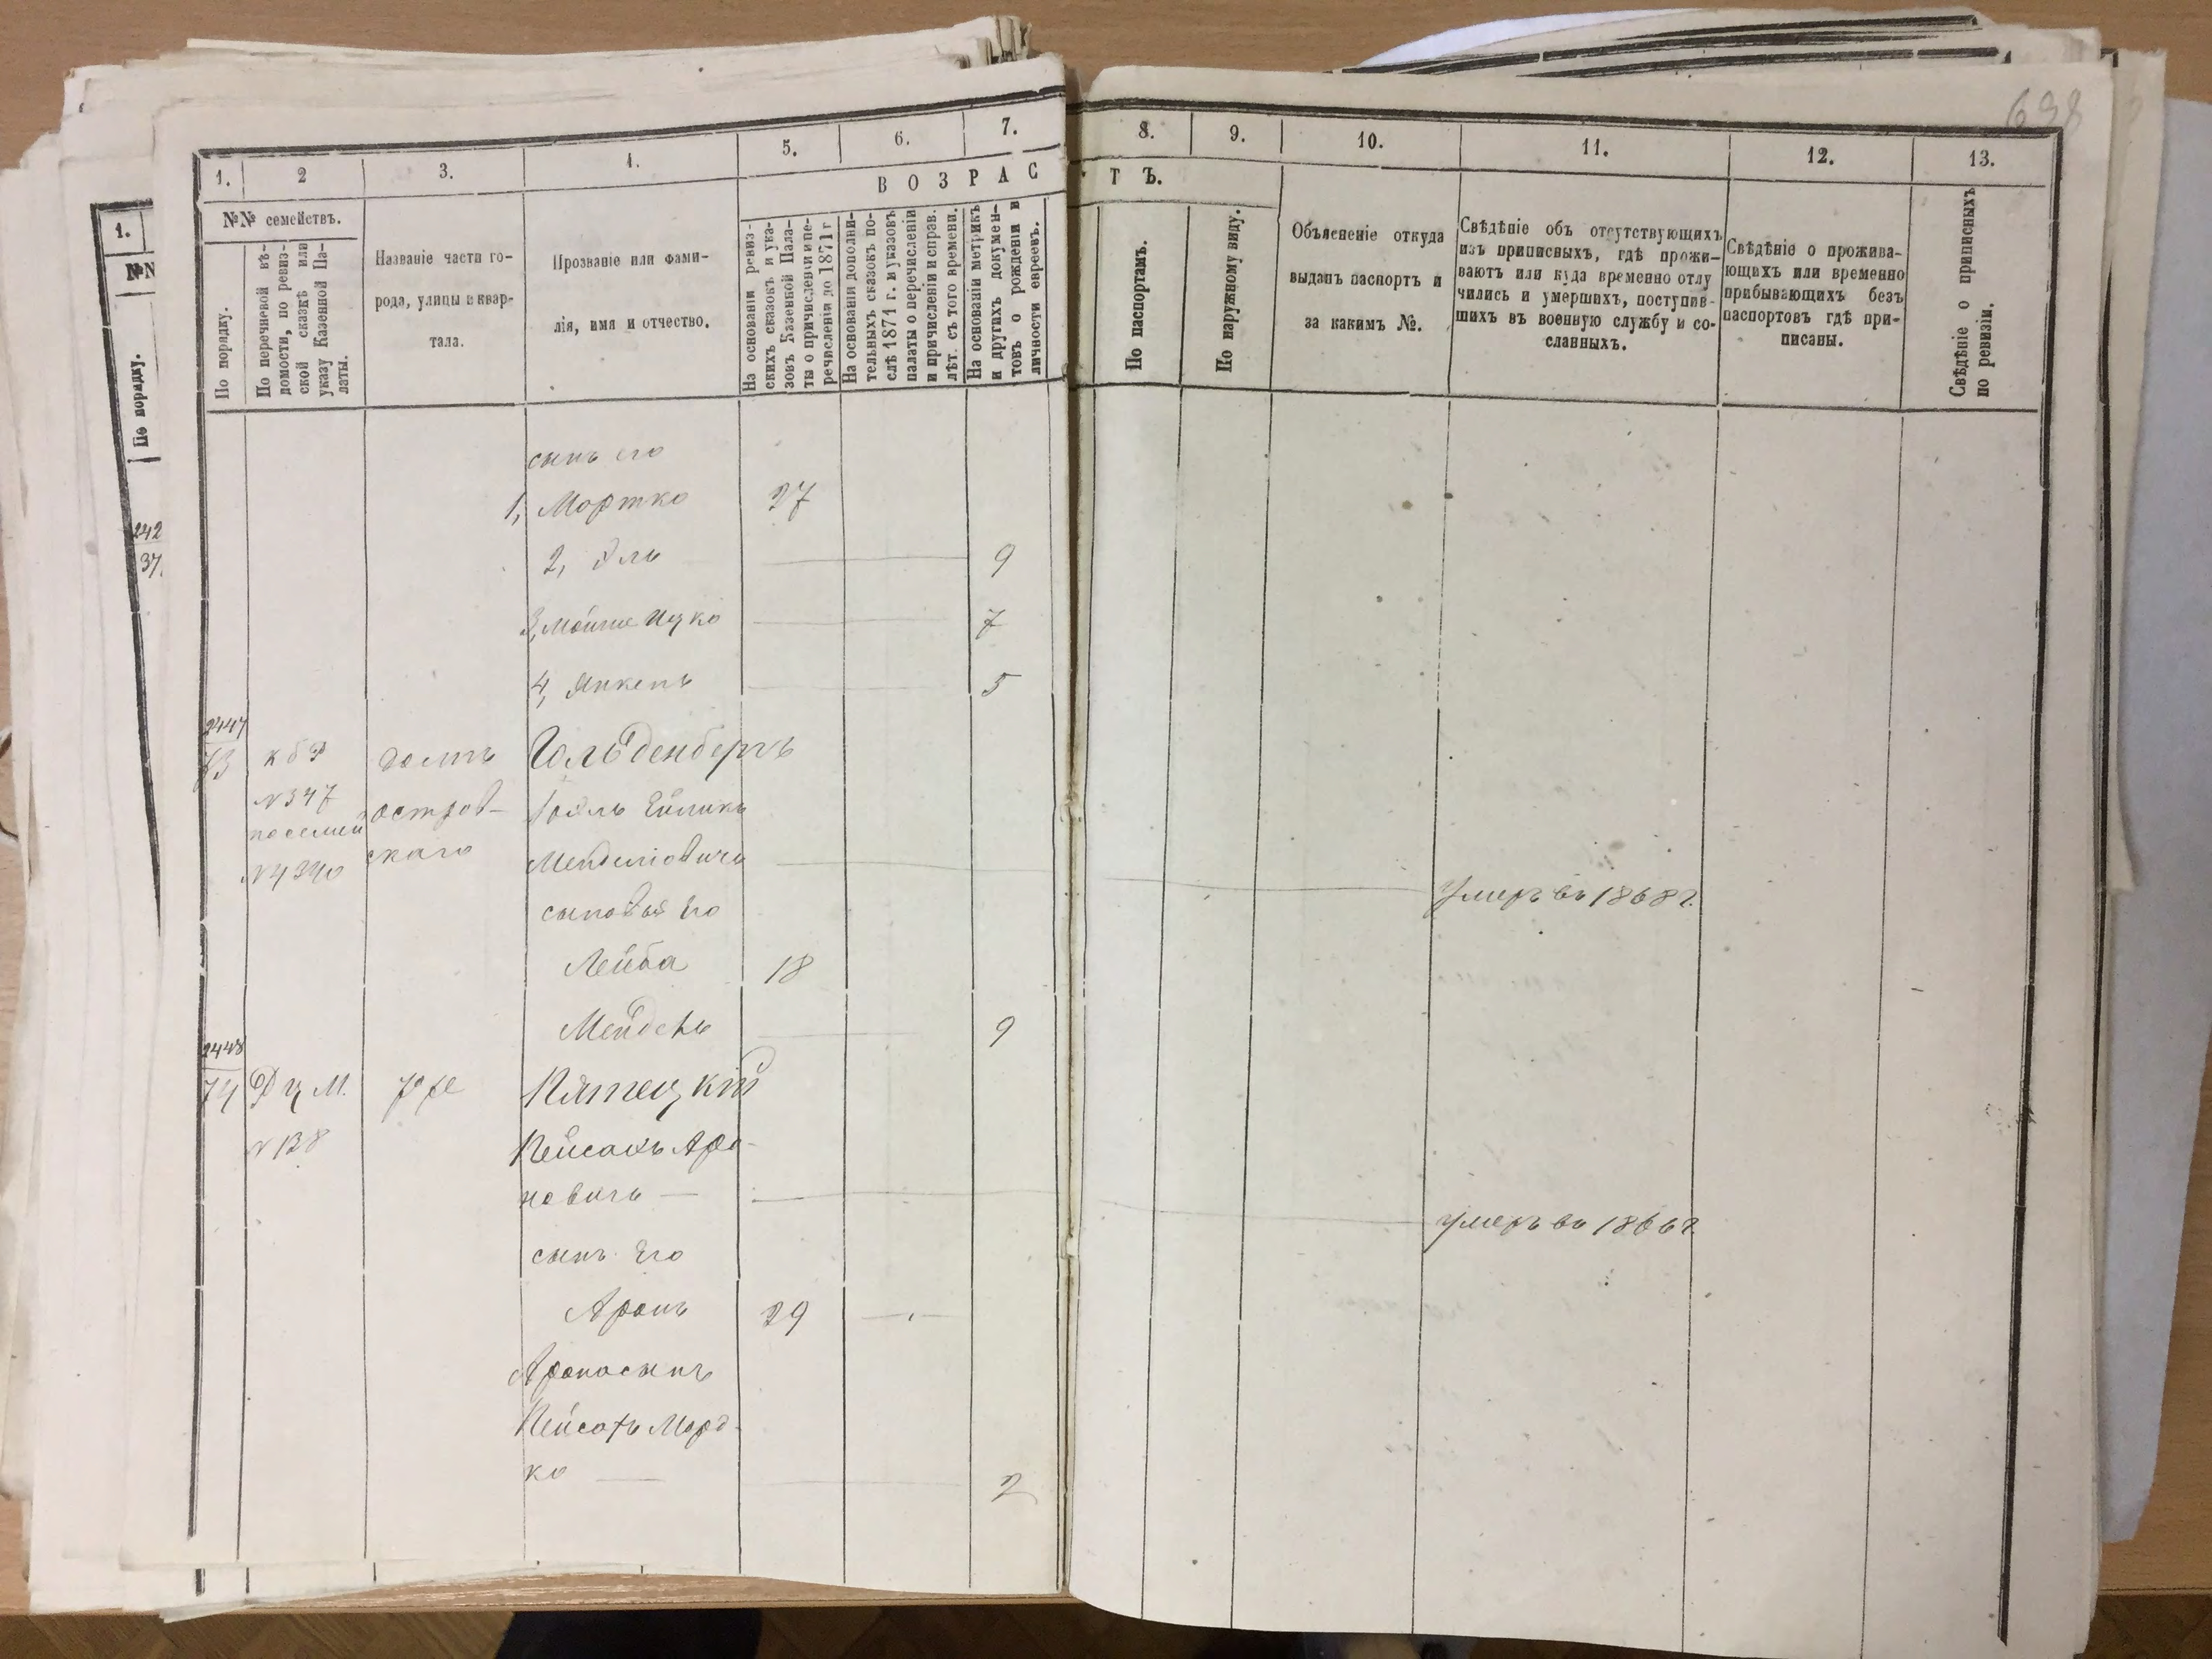 698
1. 2 3. 4. 5. 6. 7. 8. 9. 10. 11. 12. 13.
ВОЗРАСТЪ.
№№ семействъ.
По порядку.
По перечневой вѣ-
домости, по ревиз-
ской сказкѣ или
указу Казенной Па-
латы.
Названіе части го-
рода, улицы и квар-
тала.
Прозваніе или фами-
лія, имя и отчество.
На основаніи ревиз-
скихъ сказокъ и ука-
зовъ Казенной Пала-
ты о причисленіи и пе-
речисленіи до 1871 г
На основаніи дополни-
тельныхъ сказокъ по-
слѣ 1871 г. и указовъ
палаты о перечисленіи
и причисленіи и справ.
лѣт. съ того времени.
На основаніи метрикъ
и другихъ докумен-
товъ о рожденіи и
личности евреевъ.
По паспортамъ.
По наружному виду.
Объясненіе откуда
выданъ паспортъ и
за какимъ №.
Свѣдѣніе объ отсутствующихъ
изъ приписныхъ, гдѣ прожи-
ваютъ или куда временно отлу
чились и умершихъ, поступив-
шихъ въ военную службу и со-
сланныхъ.
Свѣдѣніе о прожива-
ющихъ или временно
прибывающихъ безъ
паспортовъ гдѣ при-
писаны.
Свѣдѣніе о приписныхъ
по ревизіи.
1.
№N
По порядку.
242
37
сынъ его
1, Мортко 27
2, Эль 9
3, Мойше Ицко 7
4, Янкель 5
2447
73 домъ Гольденбергъ
N 347 остров-
скаго
N 4340 Менделіовичъ умеръ въ 1868 г.
сыновья Его
Лейба 18
Мендель 9
2448
74 Пятецкій
N 138 Пейсахъ Аро-
новичъ — умеръ въ 1866 г.
сынъ Его
Аронъ 29
Арона сынъ
Пейсахъ Морд-
ко — 2